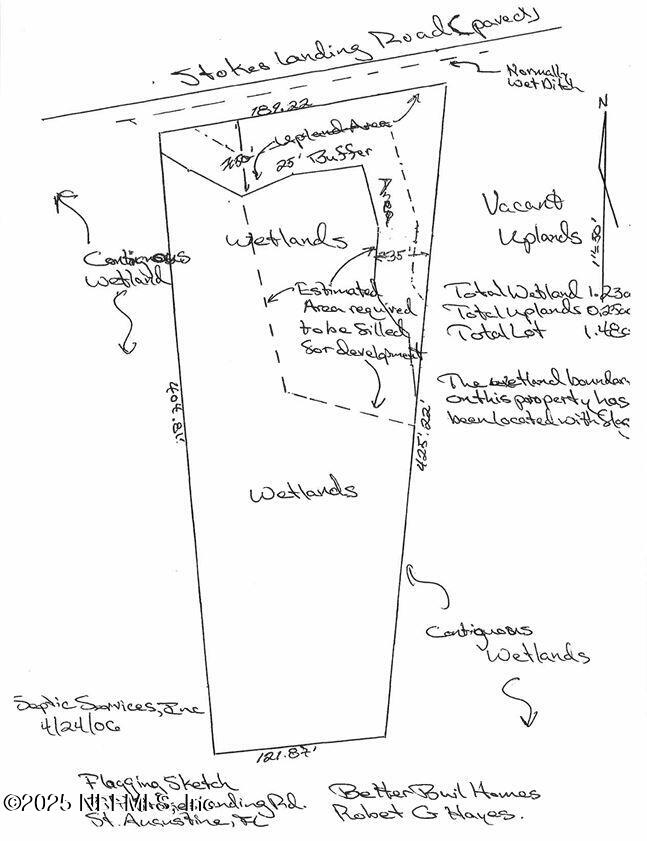 Stokes Landing Road (paved)
Normally
Wet Ditch
189.22
Upland Area
25' Buffer
N
Vacant
Uplands
1"=50'
Wetlands
35'
Contiguous
Wetland
Estimated
Area required
to be filled
for development
Total Wetland 1.23a
Total Uplands 0.25a
Total Lot 1.48a
The wetland boundar
on this property has
been located with flag
407.81'
425.22'
Wetlands
Contiguous
Wetlands
Septic Services, Inc
4/24/06
121.87'
Flagging Sketch
©2025 NEFMLS, Inc
Landing Rd.
St. Augustine, FL
Better Buil Homes
Robet G Hayes.